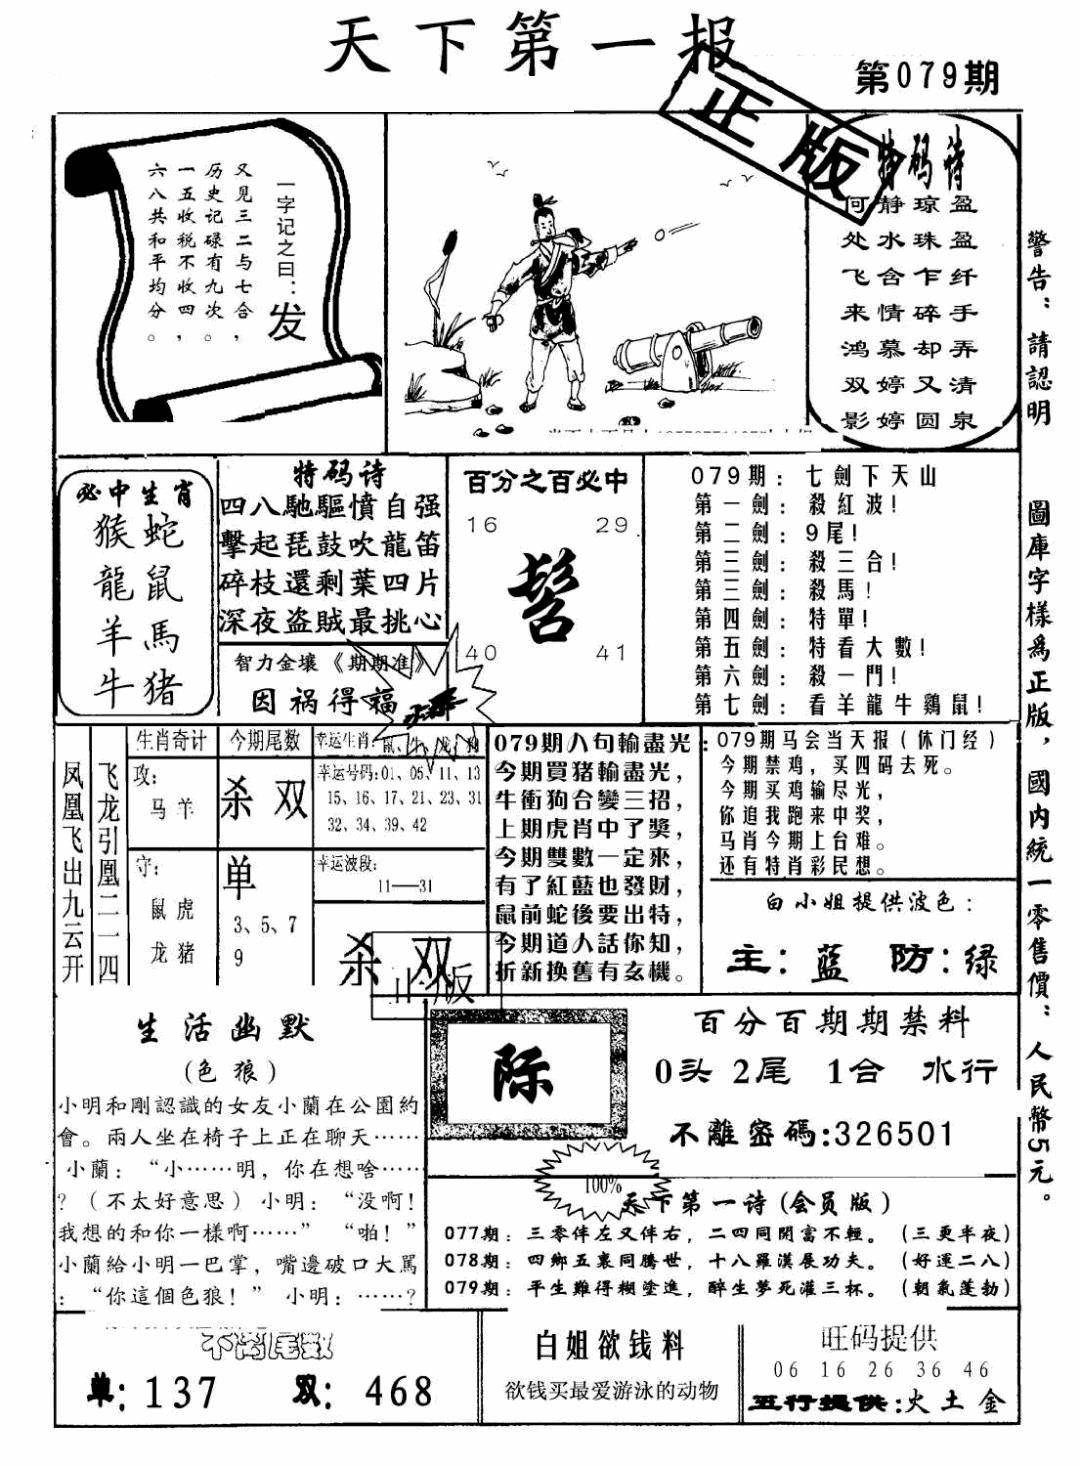 天下第一报
第079期
正版
一字记之曰：发
又见三二与七合，
历史记碌有九次。
一五收税不收四，
六八共和平均分。
特码诗
何静琼盈
处水珠盈
飞含乍纤
来情碎手
鸿慕却弄
双婷又清
影婷圆泉
警告：請認明 圖庫字樣為正版，國内統一零售價：人民幣5元。
必中生肖
猴蛇
龍鼠
羊馬
牛猪
特码诗
四八馳驅憤自强
擊起琵鼓吹龍笛
碎枝還剩葉四片
深夜盗賊最挑心
智力金壤《期期准》
因祸得福
百分之百必中
16 29
髻
40 41
079期：七劍下天山
第一劍：殺紅波！
第二劍：9尾！
第三劍：殺三合！
第三劍：殺馬！
第四劍：特單！
第五劍：特看大數！
第六劍：殺一門！
第七劍：看羊龍牛鷄鼠！
凤凰飞出九云开
飞龙引凰二一四
生肖奇计
攻：
马羊
守：
鼠虎
龙猪
今期尾数
杀双
单
3、5、7
9
幸运生肖：鼠、牛、龙、狗
幸运号码：01、05、11、13
15、16、17、21、23、31
32、34、39、42
幸运波段：
11——31
杀双
正版
079期八句輸盡光：
今期買猪輸盡光，
牛衝狗合變三招，
上期虎肖中了獎，
今期雙數一定來，
有了紅藍也發財，
鼠前蛇後要出特，
今期道人話你知，
折新换舊有玄機。
079期马会当天报（休门经）
今期禁鸡，买四码去死。
今期买鸡输尽光，
你追我跑来中奖，
马肖今期上台难。
还有特肖彩民想。
白小姐提供波色：
主：蓝 防：绿
生活幽默
(色狼)
小明和剛認識的女友小蘭在公園約
會。兩人坐在椅子上正在聊天……
小蘭：“小……明，你在想啥……
？（不太好意思）小明：“没啊！
我想的和你一樣啊……” “啪！”
小蘭給小明一巴掌，嘴邊破口大罵
：“你這個色狼！” 小明：……？
际
百分百期期禁料
0头 2尾 1合 水行
不離密碼：326501
100%
天下第一诗(会员版)
077期：三零伴左又伴右，二四同開富不輕。（三更半夜）
078期：四鄉五裏同騰世，十八羅漢展功夫。（好運二八）
079期：平生難得糊塗進，醉生夢死灌三杯。（朝氣蓬勃）
不离尾数
单：137 双：468
白姐欲钱料
欲钱买最爱游泳的动物
旺码提供
06 16 26 36 46
五行提供：火土金